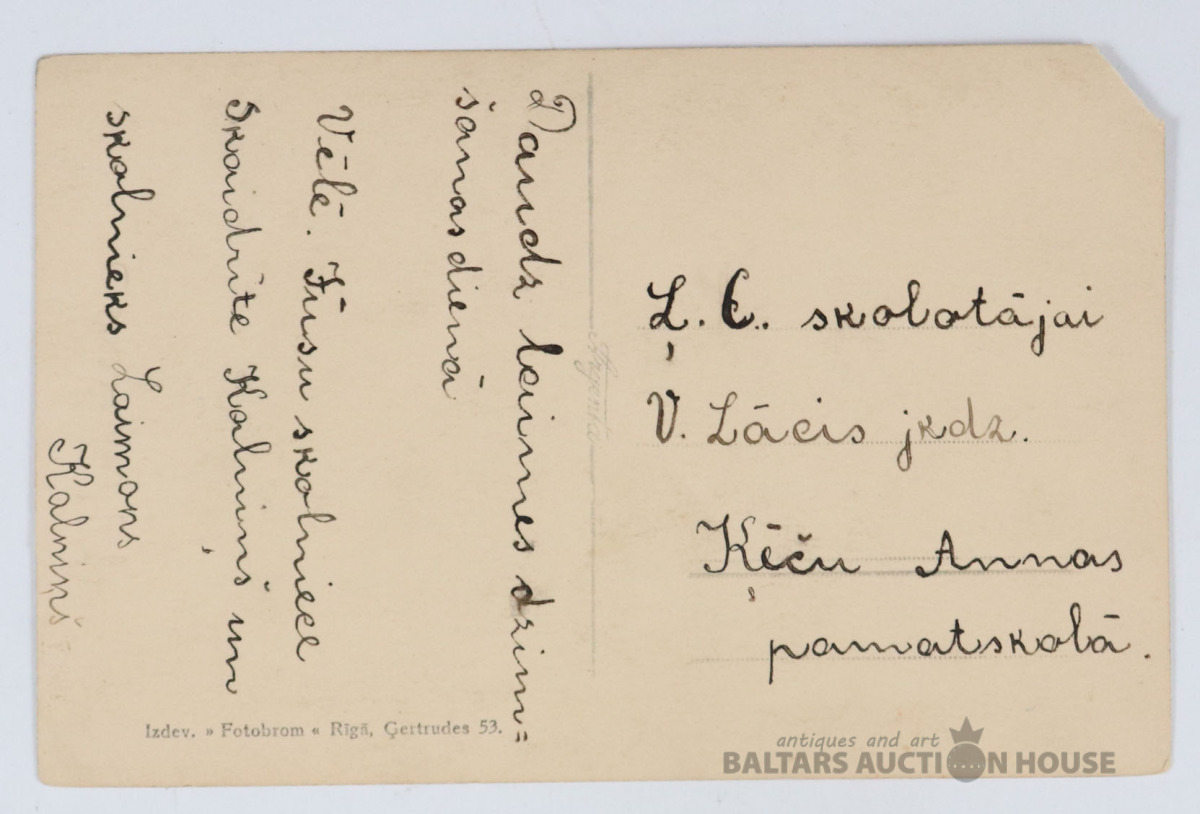 Daudz laimes dzim=
šanas dienā
Vēlē. Jūsu skolniece
Skaidrīte Kalniņš un
skolnieks Laimons
Kalniņš
Ļ. C. skolotājai
V. Lācis jkdz.
Ķēču Annas
pamatskolā.
Izdev. » Fotobrom « Rīgā, Ģertrudes 53.
antiques and art
BALTARS AUCTION HOUSE